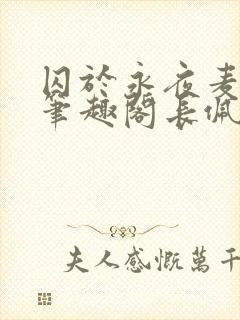 囚於永夜麦
笔趣閣長佩
夫人感慨萬千